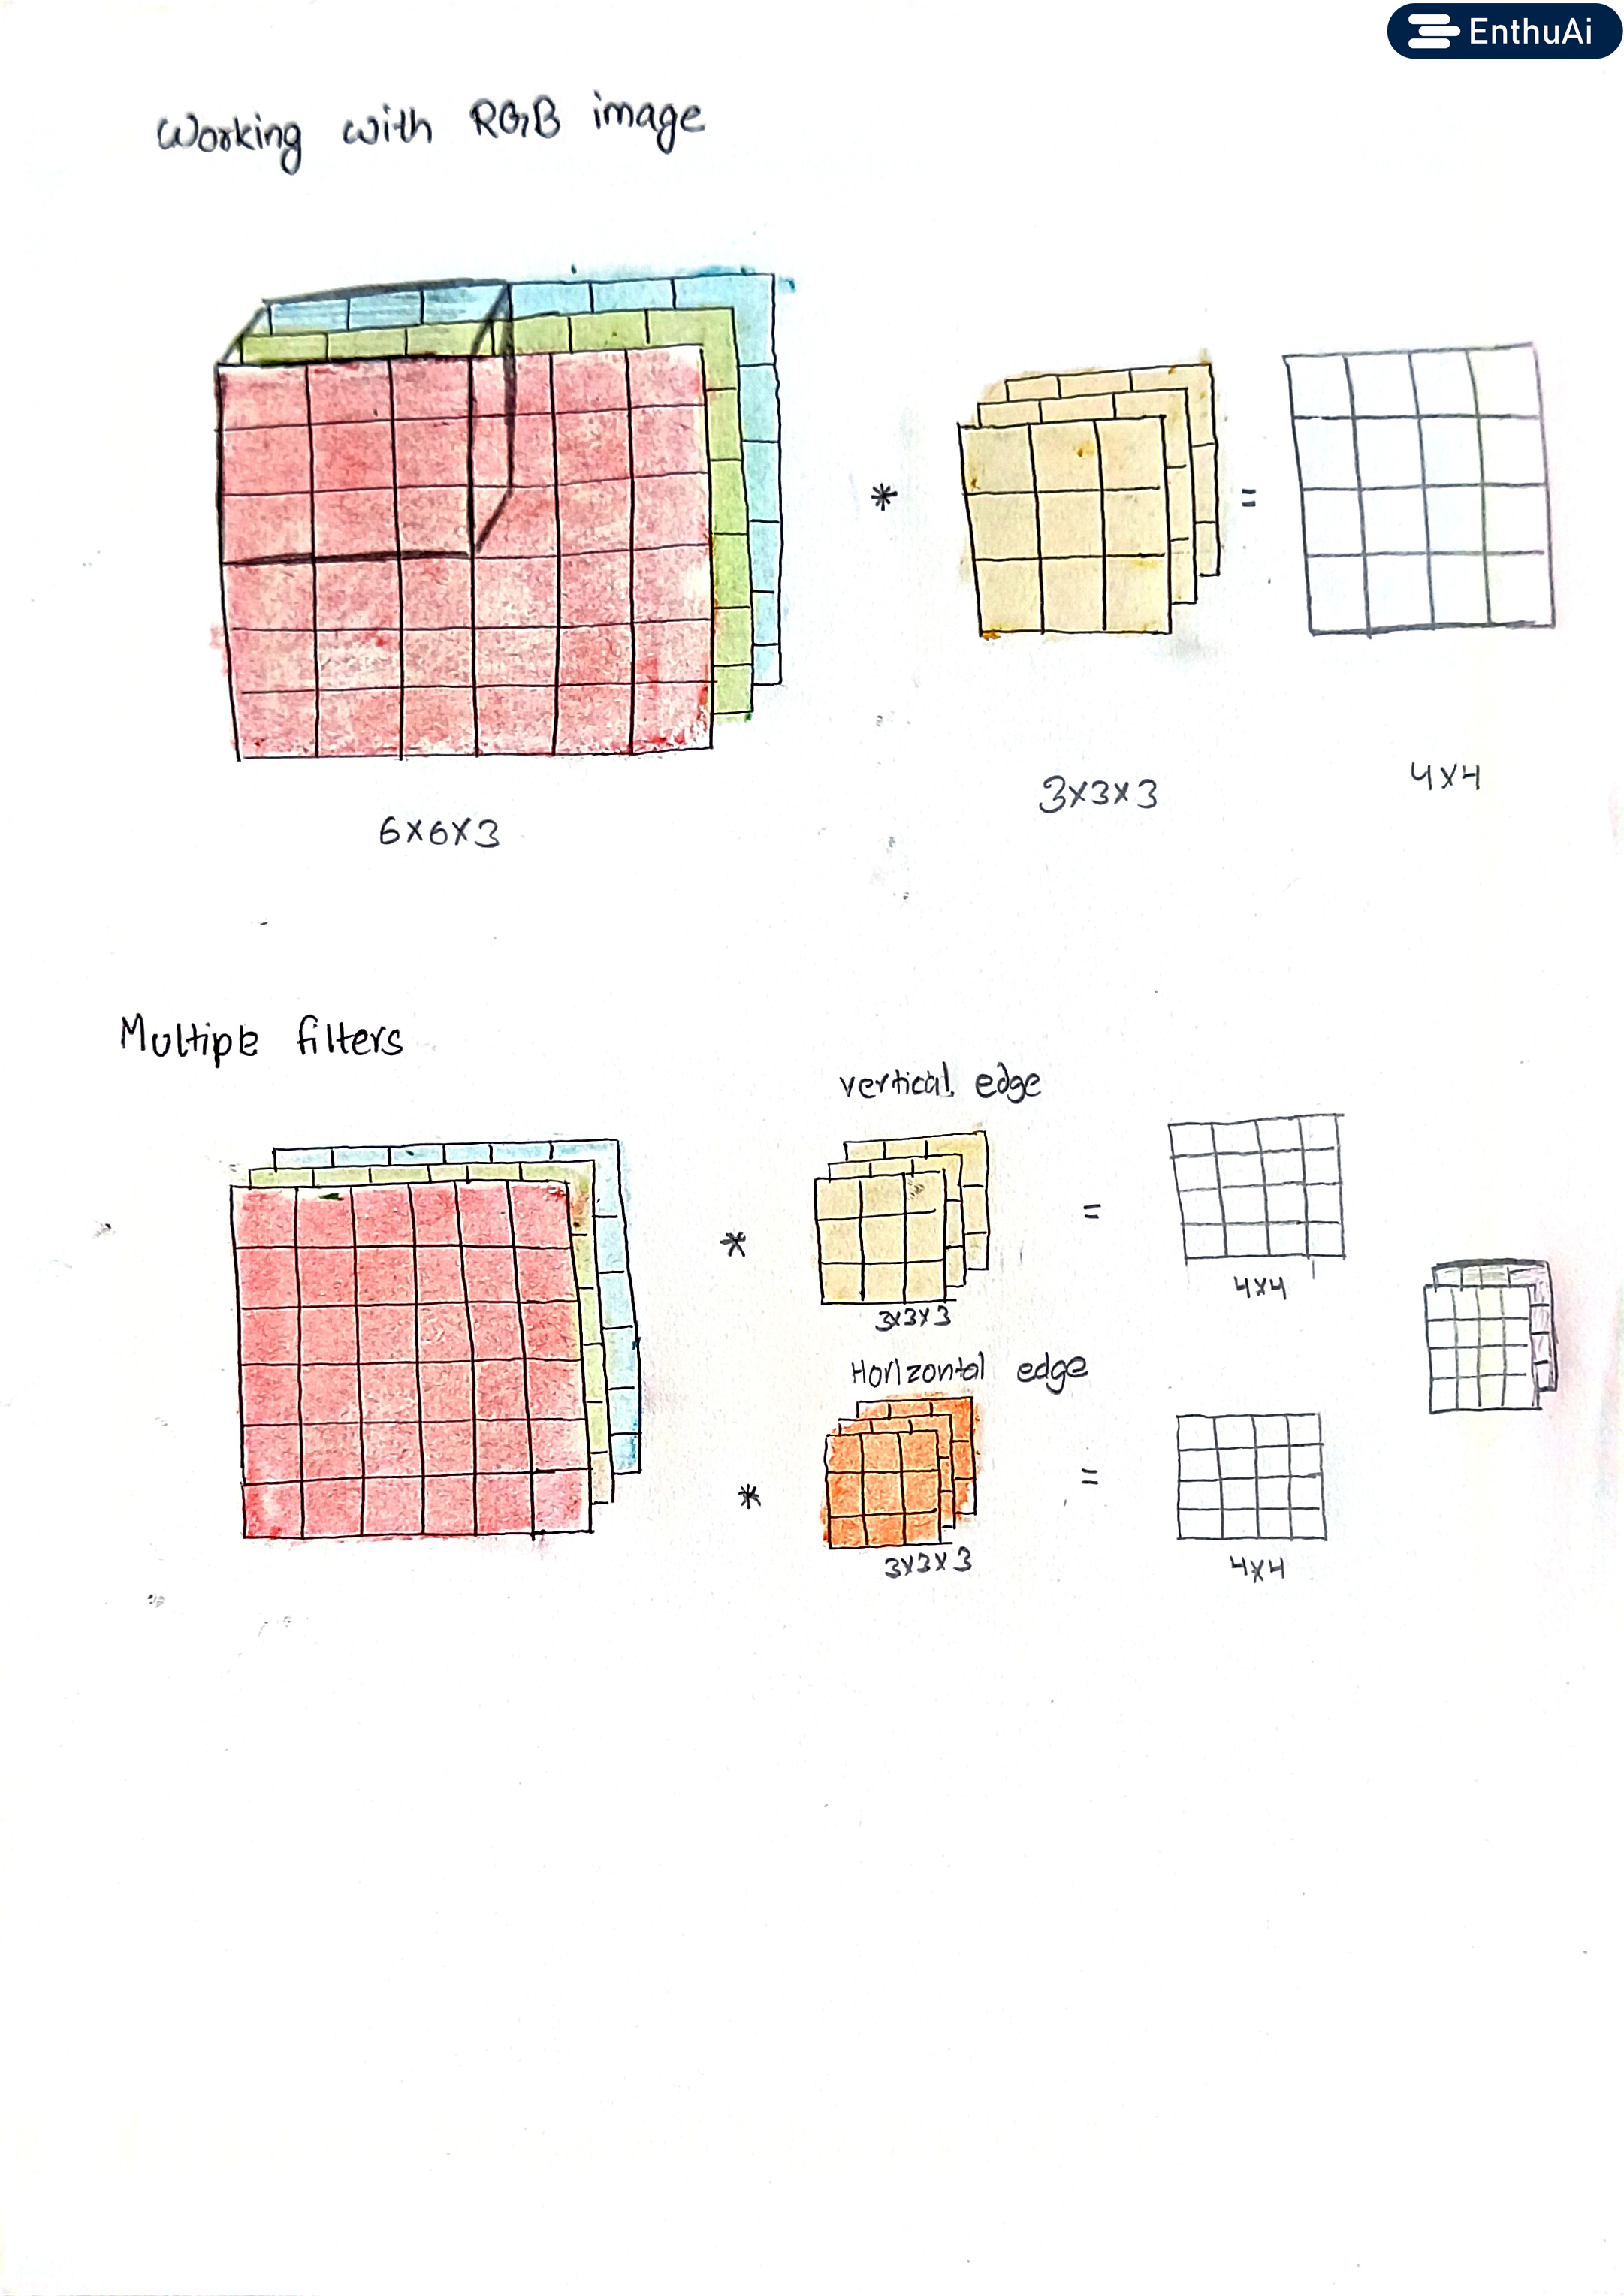 EnthuAi
Working with RGB image
*
=
6×6×3
3×3×3
4×4
Multiple filters
vertical edge
*
=
3×3×3
4×4
Horizontal edge
*
=
3×3×3
4×4